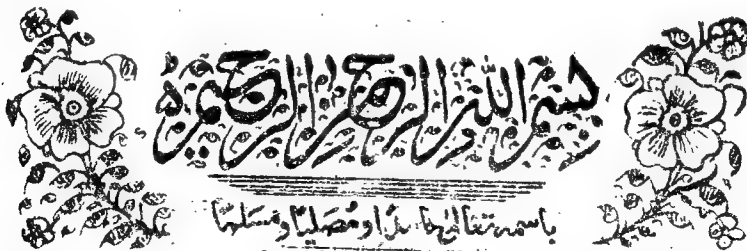 بسم الله الرحمن الرحيم
باسمه تعالى حامدا و مصليا و مسلما